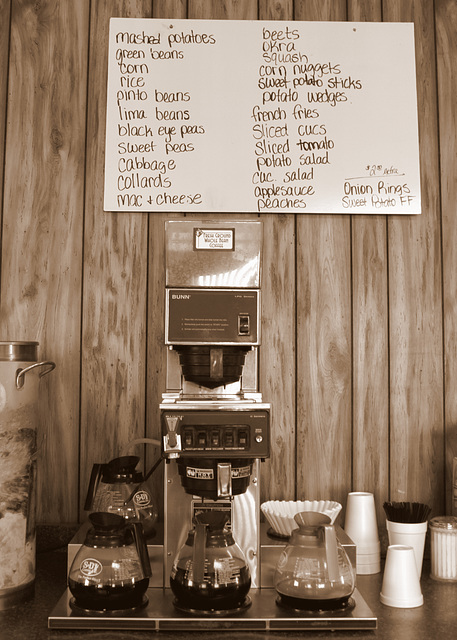 mashed potatoes
green beans
corn
rice
pinto beans
lima beans
black eye peas
sweet peas
cabbage
collards
mac + cheese
beets
okra
squash
corn nuggets
sweet potato sticks
potato wedges
french fries
sliced cucs
sliced tomato
potato salad
cuc. salad
applesauce
peaches
Onion Rings
Sweet Potato FF
Fresh Ground
Whole Bean
Coffee
BUNN